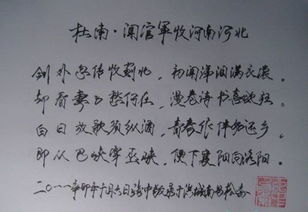 杜甫·闻官军收河南河北
剑外忽传收蓟北，初闻涕泪满衣裳。
却看妻子愁何在，漫卷诗书喜欲狂。
白日放歌须纵酒，青春作伴好还乡。
即从巴峡穿巫峡，便下襄阳向洛阳。
二〇一一年